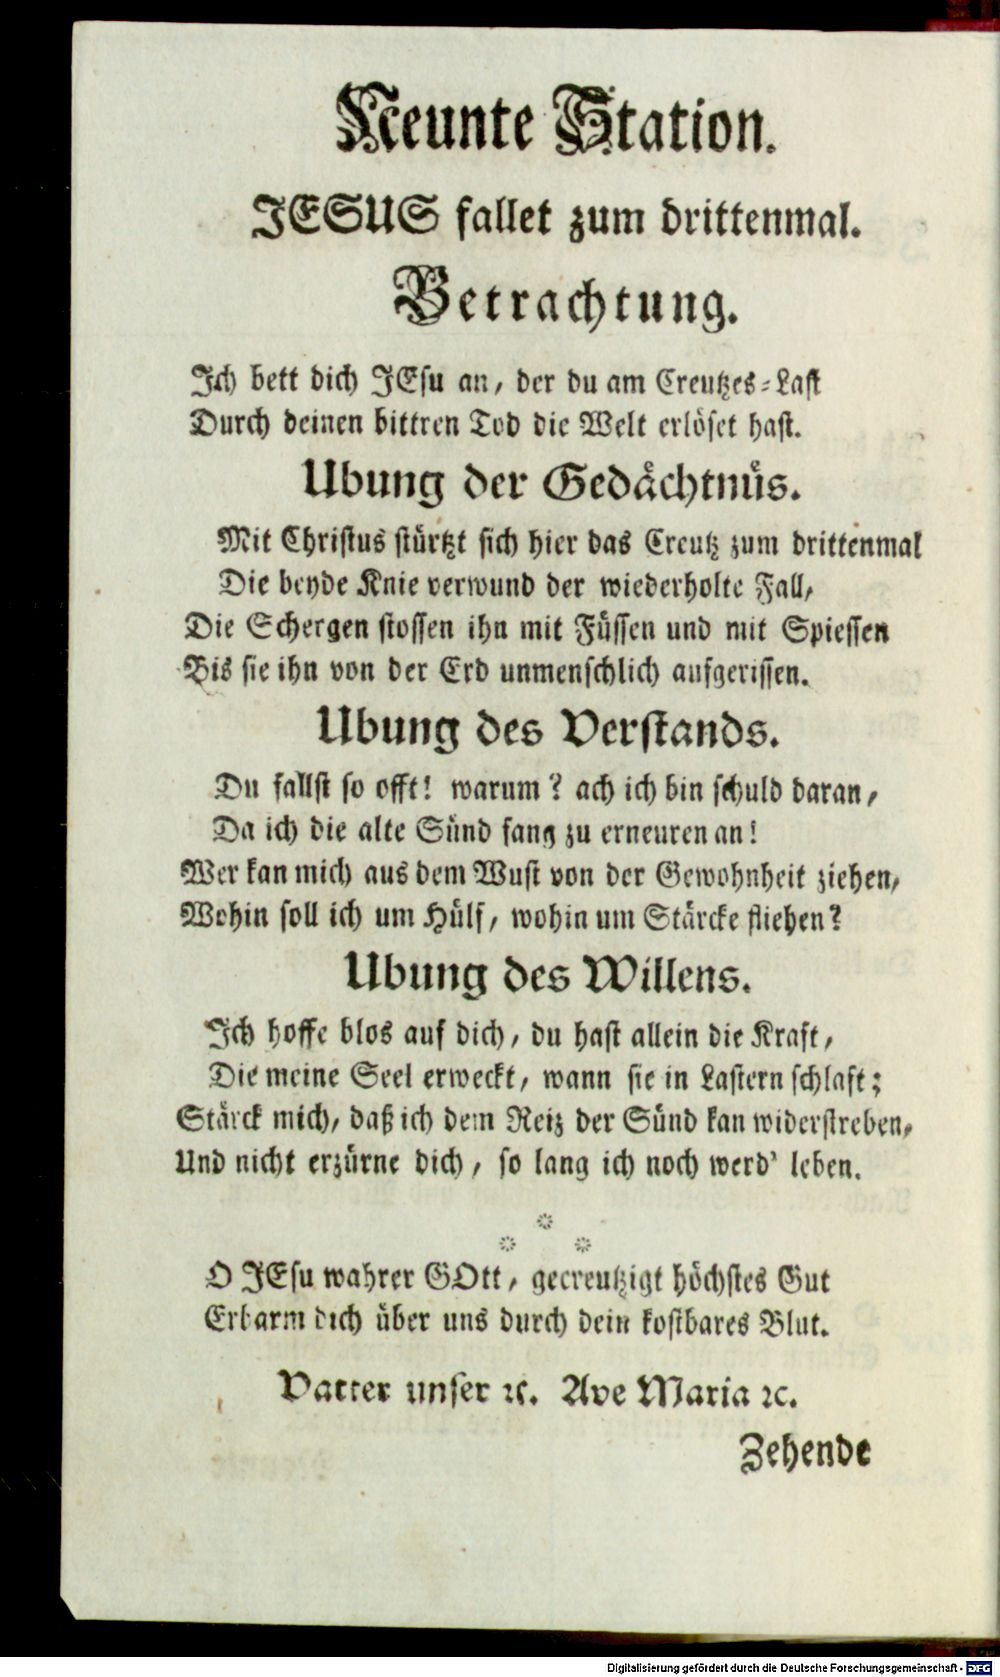 Neunte Station.
JESUS fallet zum drittenmal.
Betrachtung.
Ich bett dich JEsu an, der du am Creutzes-Last
Durch deinen bittren Tod die Welt erlöset hast.
Ubung der Gedächtnüs.
Mit Christus stürtzt sich hier das Creutz zum drittenmal
Die beyde Knie verwund der wiederholte Fall,
Die Schergen stossen ihn mit Füssen und mit Spiessen
Bis sie ihn von der Erd unmenschlich aufgerissen.
Ubung des Verstands.
Du fallst so offt! warum? ach ich bin schuld daran,
Da ich die alte Sünd fang zu erneuren an!
Wer kan mich aus dem Wust von der Gewohnheit ziehen,
Wohin soll ich um Hülf, wohin um Stärcke fliehen?
Ubung des Willens.
Ich hoffe blos auf dich, du hast allein die Kraft,
Die meine Seel erweckt, wann sie in Lastern schlaft;
Stärck mich, daß ich dem Reiz der Sünd kan widerstreben,
Und nicht erzürne dich, so lang ich noch werd' leben.
*
* *
O JEsu wahrer GOtt, gecreutzigt höchstes Gut
Erbarm dich über uns durch dein kostbares Blut.
Vatter unser ꝛc. Ave Maria ꝛc.
Zehende
Digitalisierung gefördert durch die Deutsche Forschungsgemeinschaft - DFG